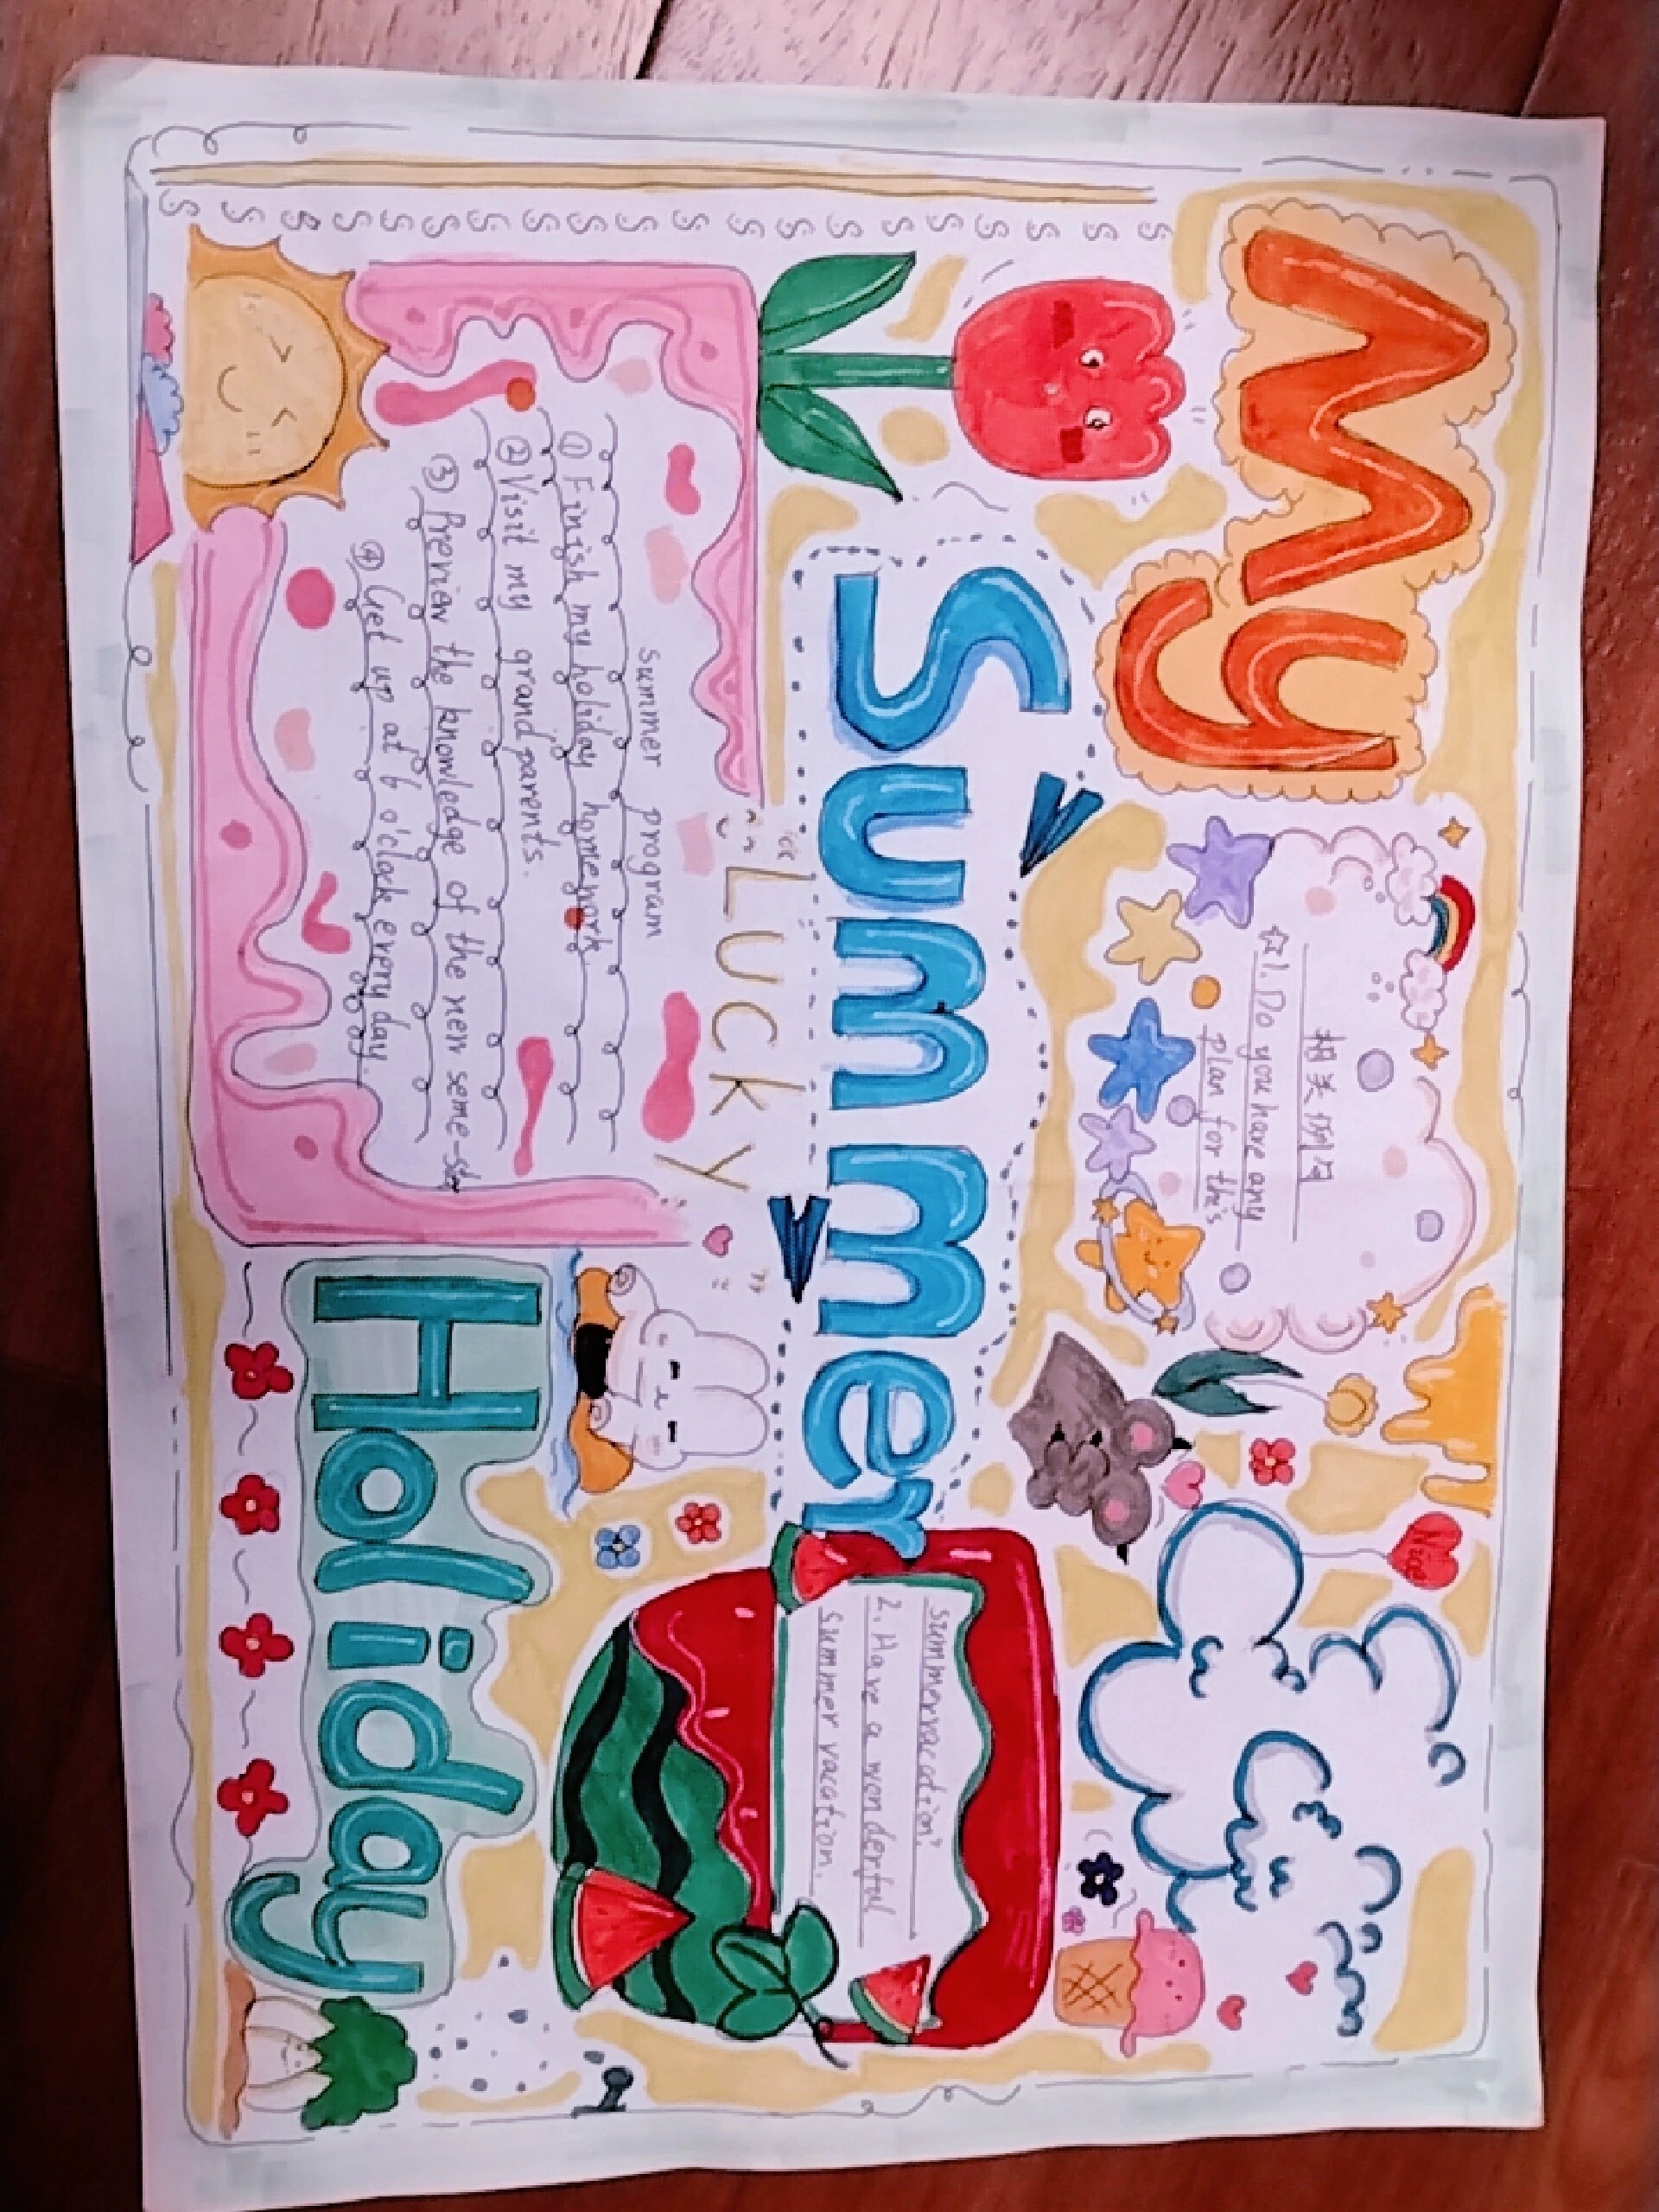 My
Summer
Holiday
相关例句
☆1. Do you have any
plan for this
summervacation?
2. Have a wonderful
summer vacation.
Nice
Lucky
summer program
① Finish my holiday homework.
② Visit my grandparents.
③ Preview the knowledge of the new seme-
④ Get up at 6 o'clock every day.